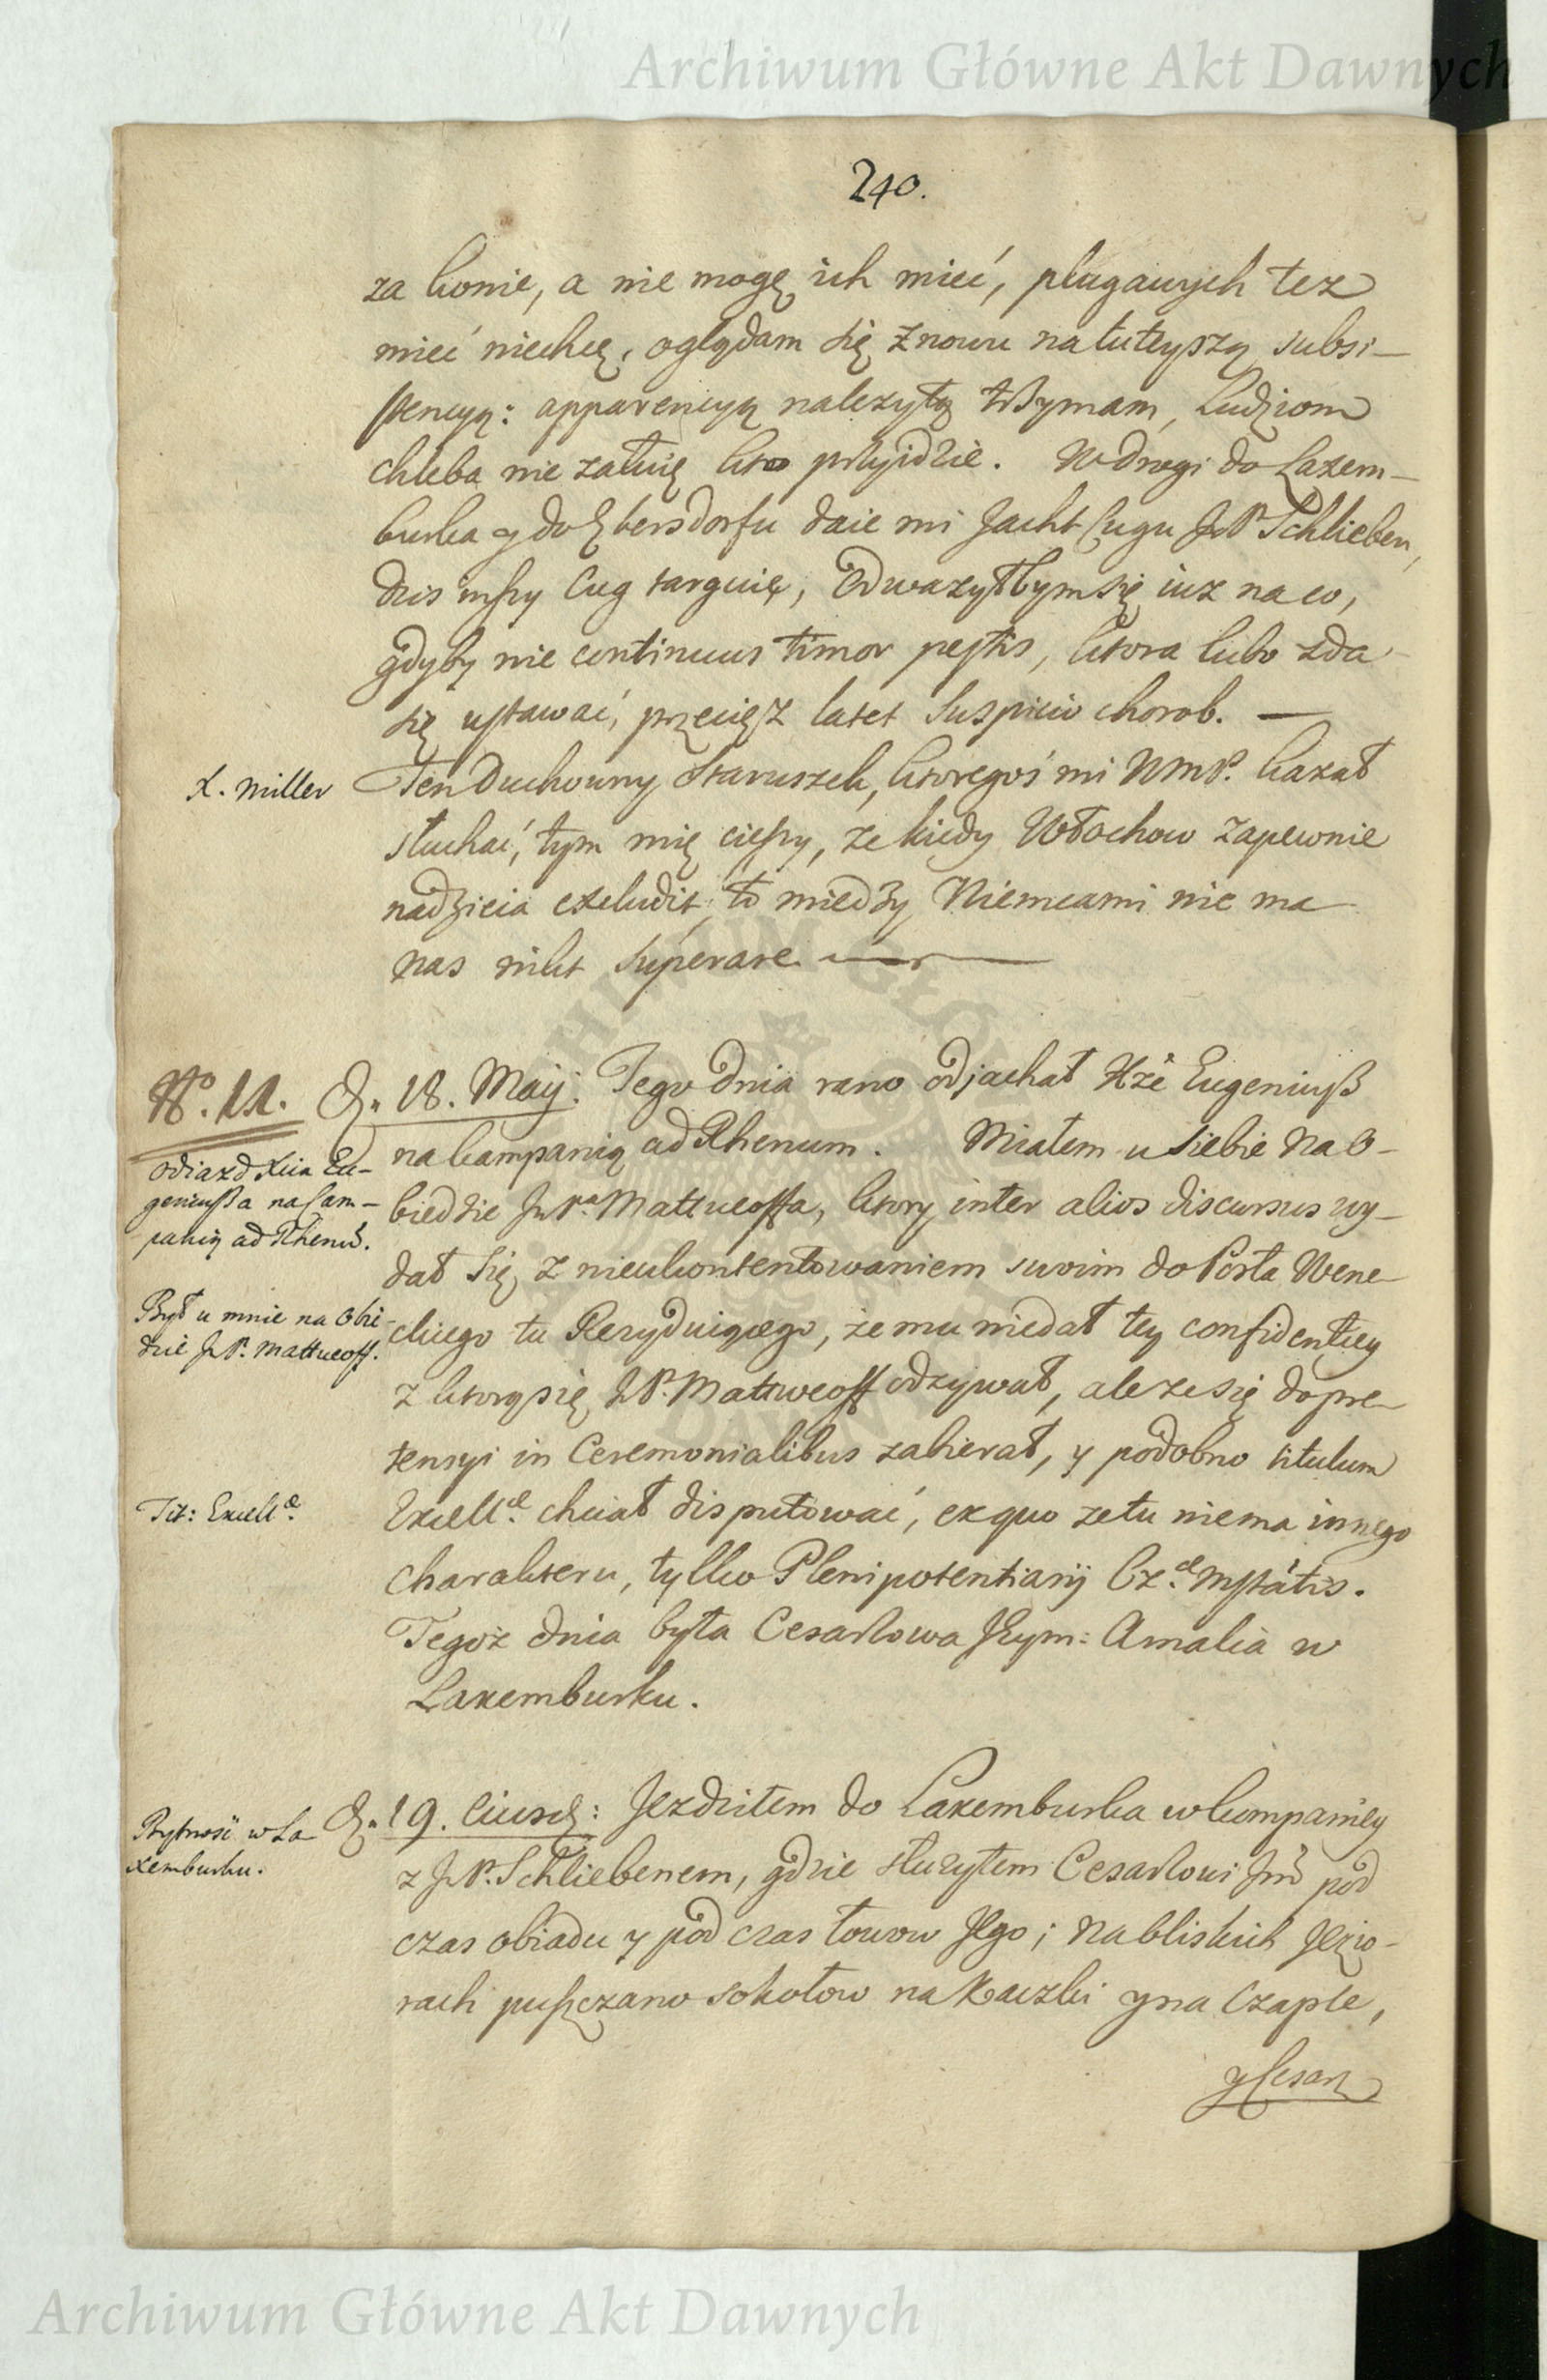 Archiwum Główne Akt Dawnych
240.
za konie, a nie mogę ich mieć, plugawych tez
mieć niechcę, oglądam się znowu na tuteyszą subsi-
stencyą: apparencyą nalezytą trzymam, Ludziom
chleba nie załuię kto przyidzie. W drogi do Laxem-
burka y do Ebersdorfu daie mi Jacht Cugu JP. Schlieben,
dzis inszy Cug targuię, Odwazyłbym się iuz na co,
gdyby nie continuus timor pestis, ktora lubo zda
się ustawać, przecięz latet Suspicio chorob. —
X. Miller
Ten Duchowny Staruszek, ktoregoś mi WMP. kazał
słuchać, tym mię cieszy, że kiedy Włochow zapewnie
nadzieia excludit, to miedzy Niemcami nie ma
nas nikt superare
No. 11. D. 18. Maij. Tego dnia rano odjachał Xże Eugeniusz
na kampanią ad Rhenum. Miałem u siebie na o-
Odiazd Xcia Eu-
geniusza na Cam-
panią ad Rhenũ.
biedzie JP. Mattueoffa, ktory inter alios discursus wy-
dał się z nieukontentowaniem swoim do Posła Wene-
Był u mnie na Obie-
dzie JP. Mattueoff.
ckiego tu Rezyduiącego, że mu niedał tey confidentiey
z ktorą się JP. Mattweoff odzywał, ale ze się do pre-
tensyi in Ceremonialibus zabierał, y podobno titulum
Tit: Excellae
Excellae chciał disputować, ex quo ze tu niema innego
charakteru, tylko Plenipotentiarij Cz.ae Mstátis.
Tegoż dnia była Cesarzowa JEym: Amalia w
Laxemburku.
Bytność w La-
xemburku.
D. 19. Eiusd: Jezdziłem do Laxemburka w kompaniey
z JP. Schliebenem, gdzie służyłem Cesarzowi Jmć pod
czas obiadu y pod czas łowow Jego; na bliskich Jezio-
rach puszczano sokołow na kaczki y na Czaple,
y Cesarz
Archiwum Główne Akt Dawnych